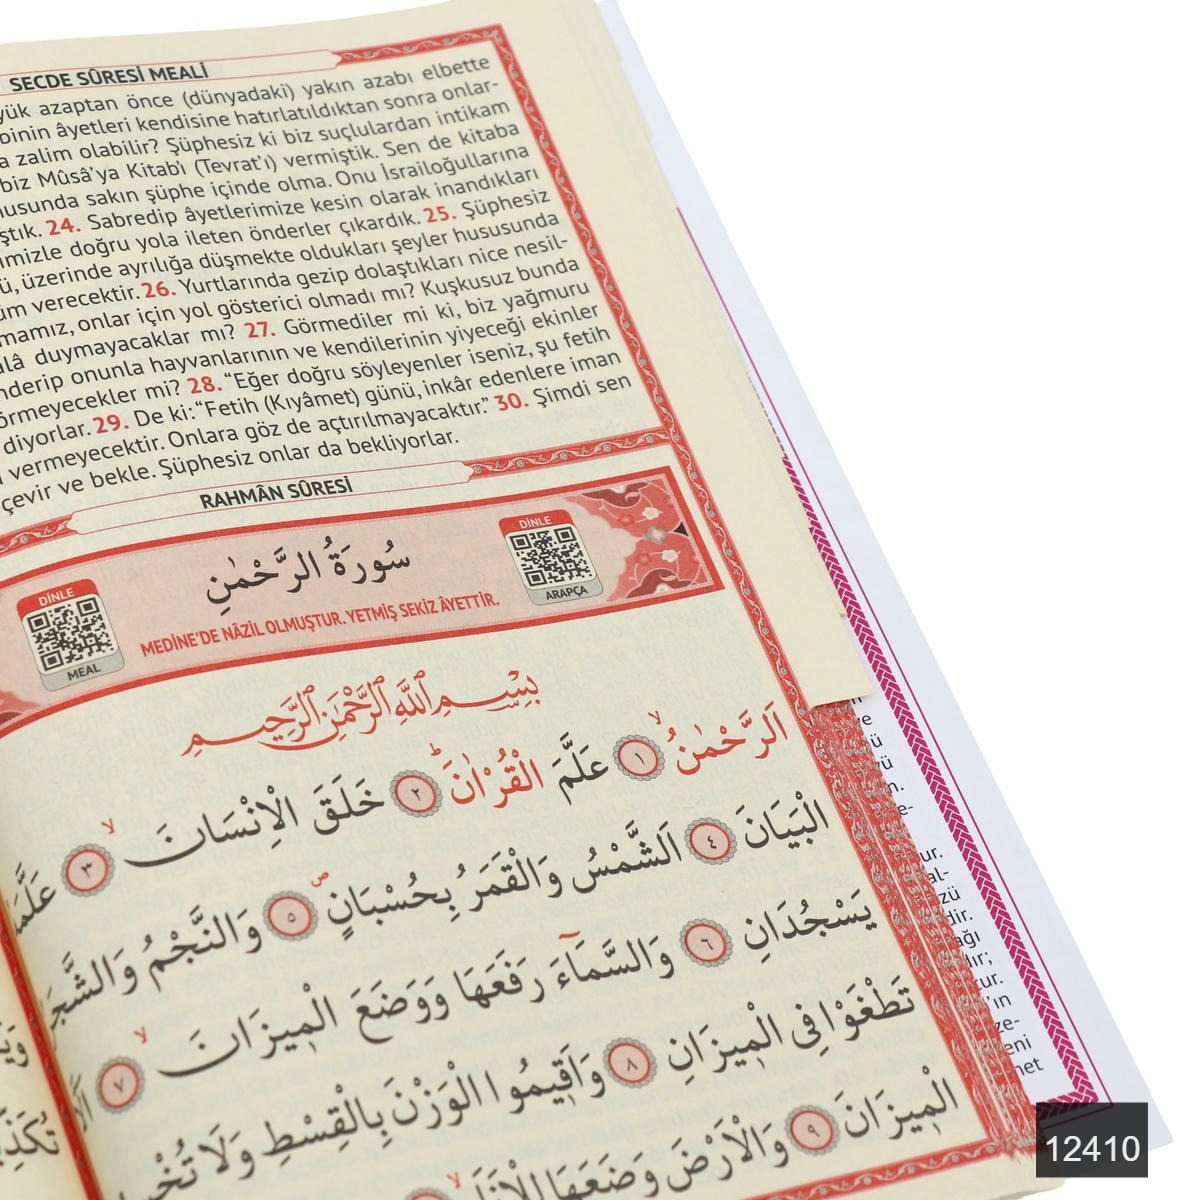 SECDE SÛRESİ MEALİ
yük azaptan önce (dünyadaki) yakın azabı elbette
binin âyetleri kendisine hatırlatıldıktan sonra onlar-
a zalim olabilir? Şüphesiz ki biz suçlulardan intikam
biz Mûsâ'ya Kitab'ı (Tevrat'ı) vermiştik. Sen de kitaba
usunda sakın şüphe içinde olma. Onu İsrailoğullarına
ştık. 24. Sabredip âyetlerimize kesin olarak inandıkları
imizle doğru yola ileten önderler çıkardık. 25. Şüphesiz
ü, üzerinde ayrılığa düşmekte oldukları şeyler hususunda
üm verecektir. 26. Yurtlarında gezip dolaştıkları nice nesil-
mamız, onlar için yol gösterici olmadı mı? Kuşkusuz bunda
alâ duymayacaklar mı? 27. Görmediler mi ki, biz yağmuru
nderip onunla hayvanlarının ve kendilerinin yiyeceği ekinler
örmeyecekler mi? 28. “Eğer doğru söyleyenler iseniz, şu fetih
diyorlar. 29. De ki: “Fetih (Kıyâmet) günü, inkâr edenlere iman
vermeyecektir. Onlara göz de açtırılmayacaktır.” 30. Şimdi sen
çevir ve bekle. Şüphesiz onlar da bekliyorlar.
RAHMÂN SÛRESİ
DİNLE
ARAPÇA
سُورَةُ الرَّحْمٰنِ
DİNLE
MEAL
MEDİNE'DE NÂZİL OLMUŞTUR. YETMİŞ SEKİZ ÂYETTİR.
بِسْمِ اللّٰهِ الرَّحْمٰنِ الرَّحِيمِ
اَلرَّحْمٰنُۙ ﴿١﴾ عَلَّمَ الْقُرْاٰنَۜ ﴿٢﴾ خَلَقَ الْاِنْسَانَۙ ﴿٣﴾ عَلَّمَ
الْبَيَانَ ﴿٤﴾ اَلشَّمْسُ وَالْقَمَرُ بِحُسْبَانٍۖ ﴿٥﴾ وَالنَّجْمُ وَالشَّجَ
يَسْجُدَانِ ﴿٦﴾ وَالسَّمَٓاءَ رَفَعَهَا وَوَضَعَ الْم۪يزَانَۙ ﴿٧﴾ اَلَّا
تَطْغَوْا فِي الْم۪يزَانِ ﴿٨﴾ وَاَق۪يمُوا الْوَزْنَ بِالْقِسْطِ وَلَا تُخْ
الْم۪يزَانَ ﴿٩﴾ وَالْاَرْضَ وَضَعَهَا لِلْاَنَا
12410